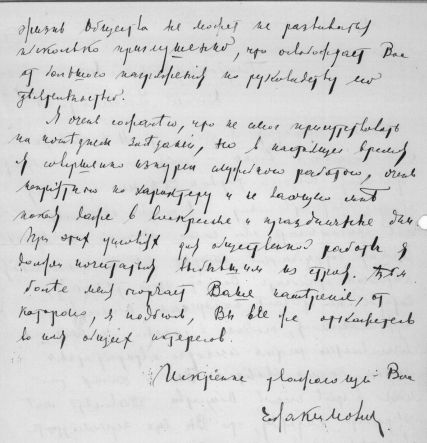 жизнь Общества не может не развиваться
несколько приглушенно, что освобождает Вас
от большого напряжения по руководству его
деятельностью.
Я очень сожалею, что не смог присутствовать
на последнем заседании, но в настоящее время
я совершенно изнурен служебною работою, очень
по характеру и не дающею мне
покоя даже в воскресные и праздничные дни
При этих условиях для общественной работы я
должен почитаться выбывшим из строя. Тем
более меня огорчает Ваше намерение, от
которого, я надеюсь, Вы все же откажетесь
во имя общих интересов.
Искренне уважающий Вас